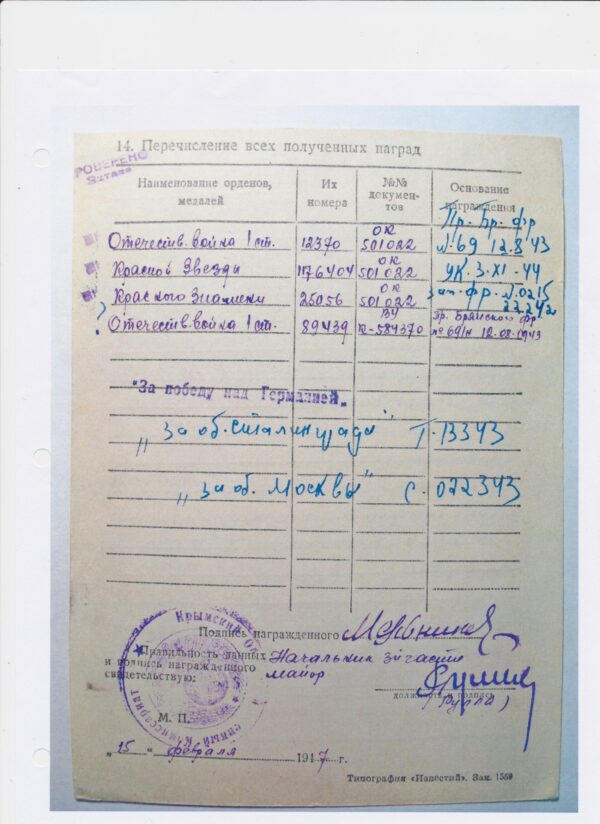 14. Перечисление всех полученных наград
Наименование орденов, медалей
Их номера
№№ докумен-тов
Основание награждения
Отечеств. война 1 ст. 12370 ОК 501022 Пр. Бр. фр №69 12.8.43
Красной Звезды 1176404 ОК 501022 Ук. 3-XI-44
Красного Знамени 25056 ОК 501022 фр. №0215
? Отечеств. война 1 ст. 89439 584370 Пр. Брянского фр. № 69/н 12.08.1943
"За победу над Германией"
„за об. Сталинграда" Т-13343
„за об. Москвы" С-022343
Подпись награжденного
Правильность данных Начальник 3 части
и подпись награжденного майор
свидетельствую:
должность и подпись
М. П.
„15" февраля 1947 г.
Типография «Известий». Зак. 1559